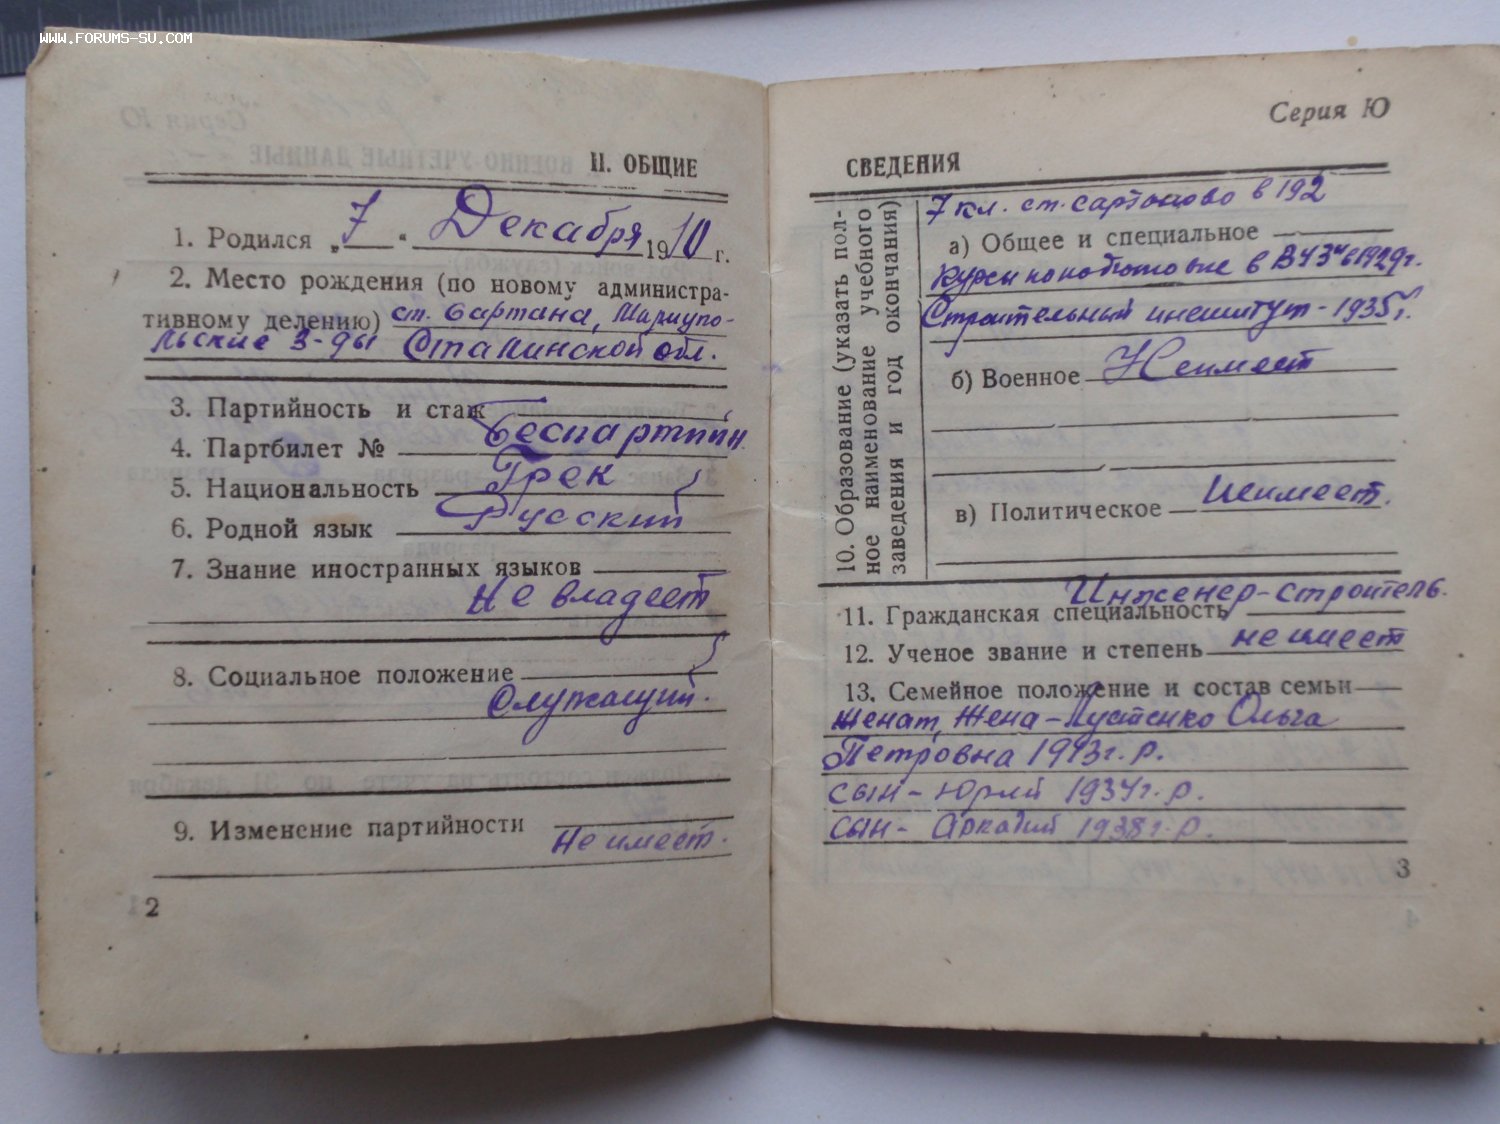 www.forums-su.com
II. ОБЩИЕ
1. Родился „ 7 “ Декабря 1910 г.
2. Место рождения (по новому администра-
тивному делению) ст. Сартана, Мариупо-
льские з-ды Сталинской обл.
3. Партийность и стаж
4. Партбилет № Беспартийн.
5. Национальность Грек
6. Родной язык Русский
7. Знание иностранных языков
Не владеет
8. Социальное положение
Служащий.
9. Изменение партийности
Не имеет.
2
Серия Ю
СВЕДЕНИЯ
10. Образование (указать пол-
ное наименование учебного
заведения и год окончания)
7 кл. ст. в 192
а) Общее и специальное
Курсы по в ВУЗ в 1929г.
Строительный институт - 1935г.
б) Военное Не имеет
в) Политическое Не имеет.
Инженер-строитель.
11. Гражданская специальность
12. Ученое звание и степень не имеет
13. Семейное положение и состав семьи
Женат, Жена - Пустенко Ольга
Петровна 1913г. р.
сын - Юрий 1934г. р.
сын - Аркадий 1938г. р.
3